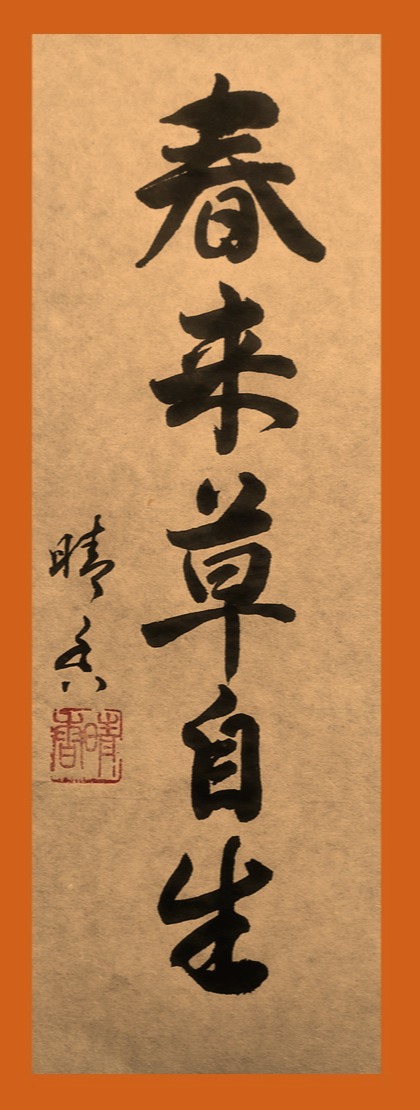 春来草自生
晴香
晴香